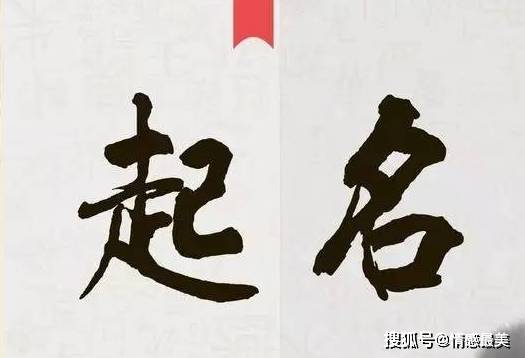 起名
搜狐号@情感最美